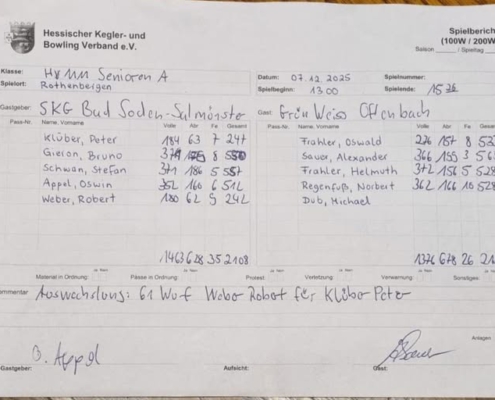 Hessischer Kegler- und
Bowling Verband e.V.
Spielbericht
(100W / 200W
Saison / Spieltag
Klasse: HVMM Senioren A
Spielort: Rothenbergen
Datum: 07.12.2025 Spielnummer:
Spielbeginn: 13.00 Spielende:
Gastgeber: SKG Bad Soden-Salmünster
Gast: Grün Weiss Offenbach
Pass-Nr. Name, Vorname Volle Abr Fe Gesamt
Pass-Nr. Name, Vorname Volle Abr Fe Gesamt
Klüber, Peter 184 63 7 247
Frahler, Oswald 157 8
Gieron, Bruno 8
Sauer, Alexander 366 155 3
Schwan, Stefan 371 186 5 557
Frahler, Helmuth 372 156 5 528
Appel, Oswin 352 160 6 512
Regenfuß, Norbert 362 166 10 528
Weber, Robert 180 62 9 242
Dub, Michael
1463 35 2108
26
Material in Ordnung: Pässe in Ordnung: Protest: Verletzung: Verwarnung: Sonstiges:
Auswechslung: 61 Wurf Weber Robert für Klüber Peter
Anlagen:
O. Appel
Gastgeber: Aufsicht: Gast: